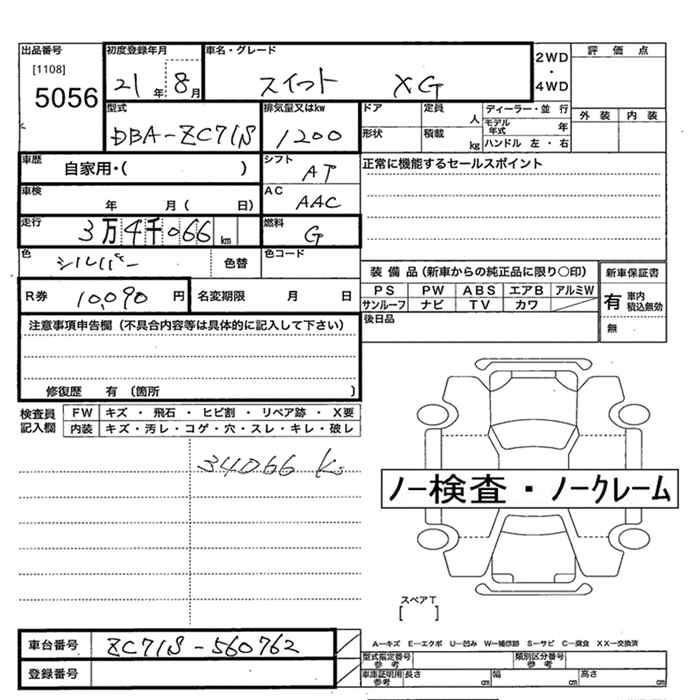 出品番号
[1108]
5056
初度登録年月
21 年 8 月
車名・グレード
スイフト XG
2WD
・
4WD
評価点
外装 内装
型式
DBA-ZC71S
排気量又はkw
1200
ドア
定員
人
形状
積載
kg
ディーラー・並 行
モデル
年式
年
ハンドル 左・右
車歴
自家用・( )
シフト
AT
正常に機能するセールスポイント
車検
年 月( 日)
AC
AAC
走行
3万4千066 km
燃料
G
色
シルバー
色替
色コード
R券
10,090 円
名変期限 月 日
装備品(新車からの純正品に限り○印)
PS PW ABS エアB アルミW
サンルーフ ナビ TV カワ
後日品
新車保証書
有 車内
積込無効
無
注意事項申告欄(不具合内容等は具体的に記入して下さい)
修復歴 有(箇所 )
検査員
記入欄
FW キズ・飛石・ヒビ割・リペア跡・X要
内装 キズ・汚レ・コゲ・穴・スレ・キレ・破レ
34066 K
ノー検査・ノークレーム
スペアT
[ ]
車台番号 ZC71S-560762
登録番号
A−キズ E−エクボ U−凹み W−補修跡 S−サビ C−腐食 XX−交換済
型式指定番号
参考
類別区分番号
参考
車庫証明用
参考
長さ cm 幅 cm 高さ cm